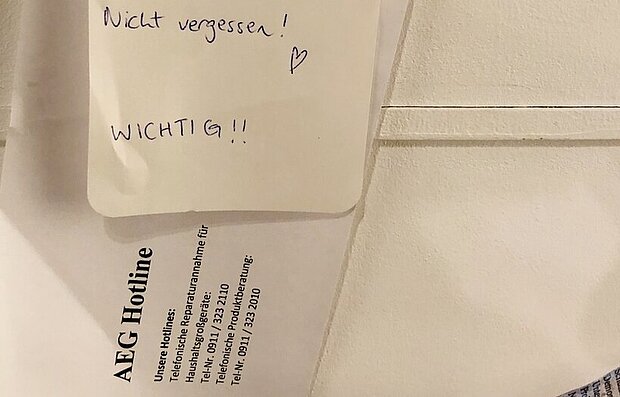 Nicht vergessen!
♡
WICHTIG!!
AEG Hotline
Unsere Hotlines:
Telefonische Reparaturannahme für
Haushaltsgroßgeräte:
Tel-Nr. 0911 / 323 2110
Telefonische Produktberatung:
Tel-Nr. 0911 / 323 2010